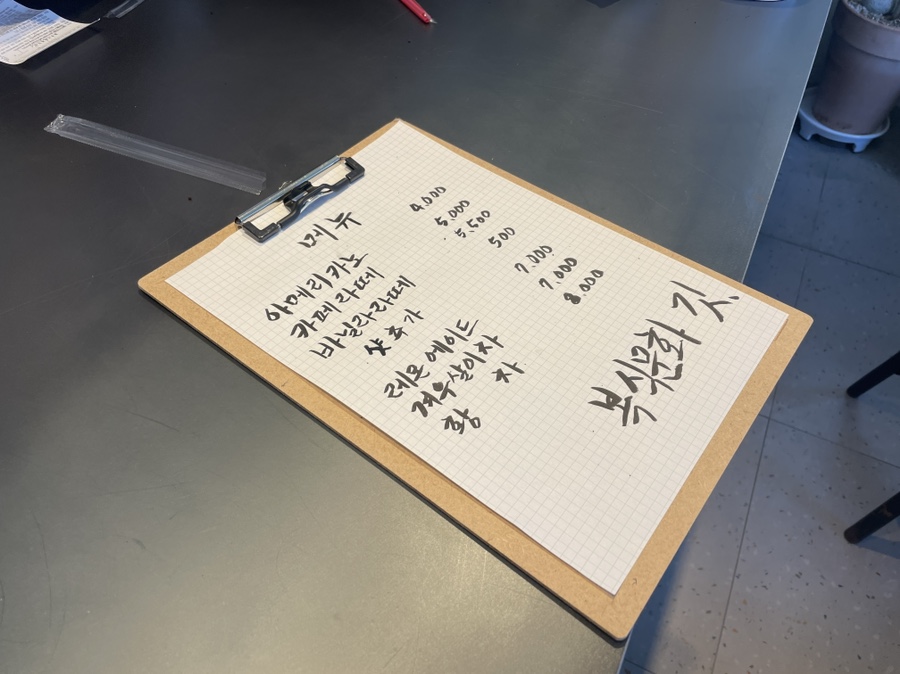 메뉴
아메리카노 4,000
카페라떼 5,000
바닐라라떼 5,500
샷추가 500
레몬에이드 7,000
겨우살이차 7,000
황 차 8,000
복식문화 깃